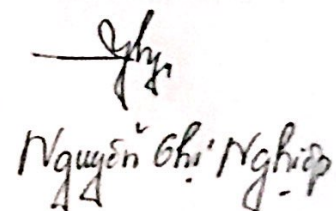 Nguyễn Thị Nghiệp